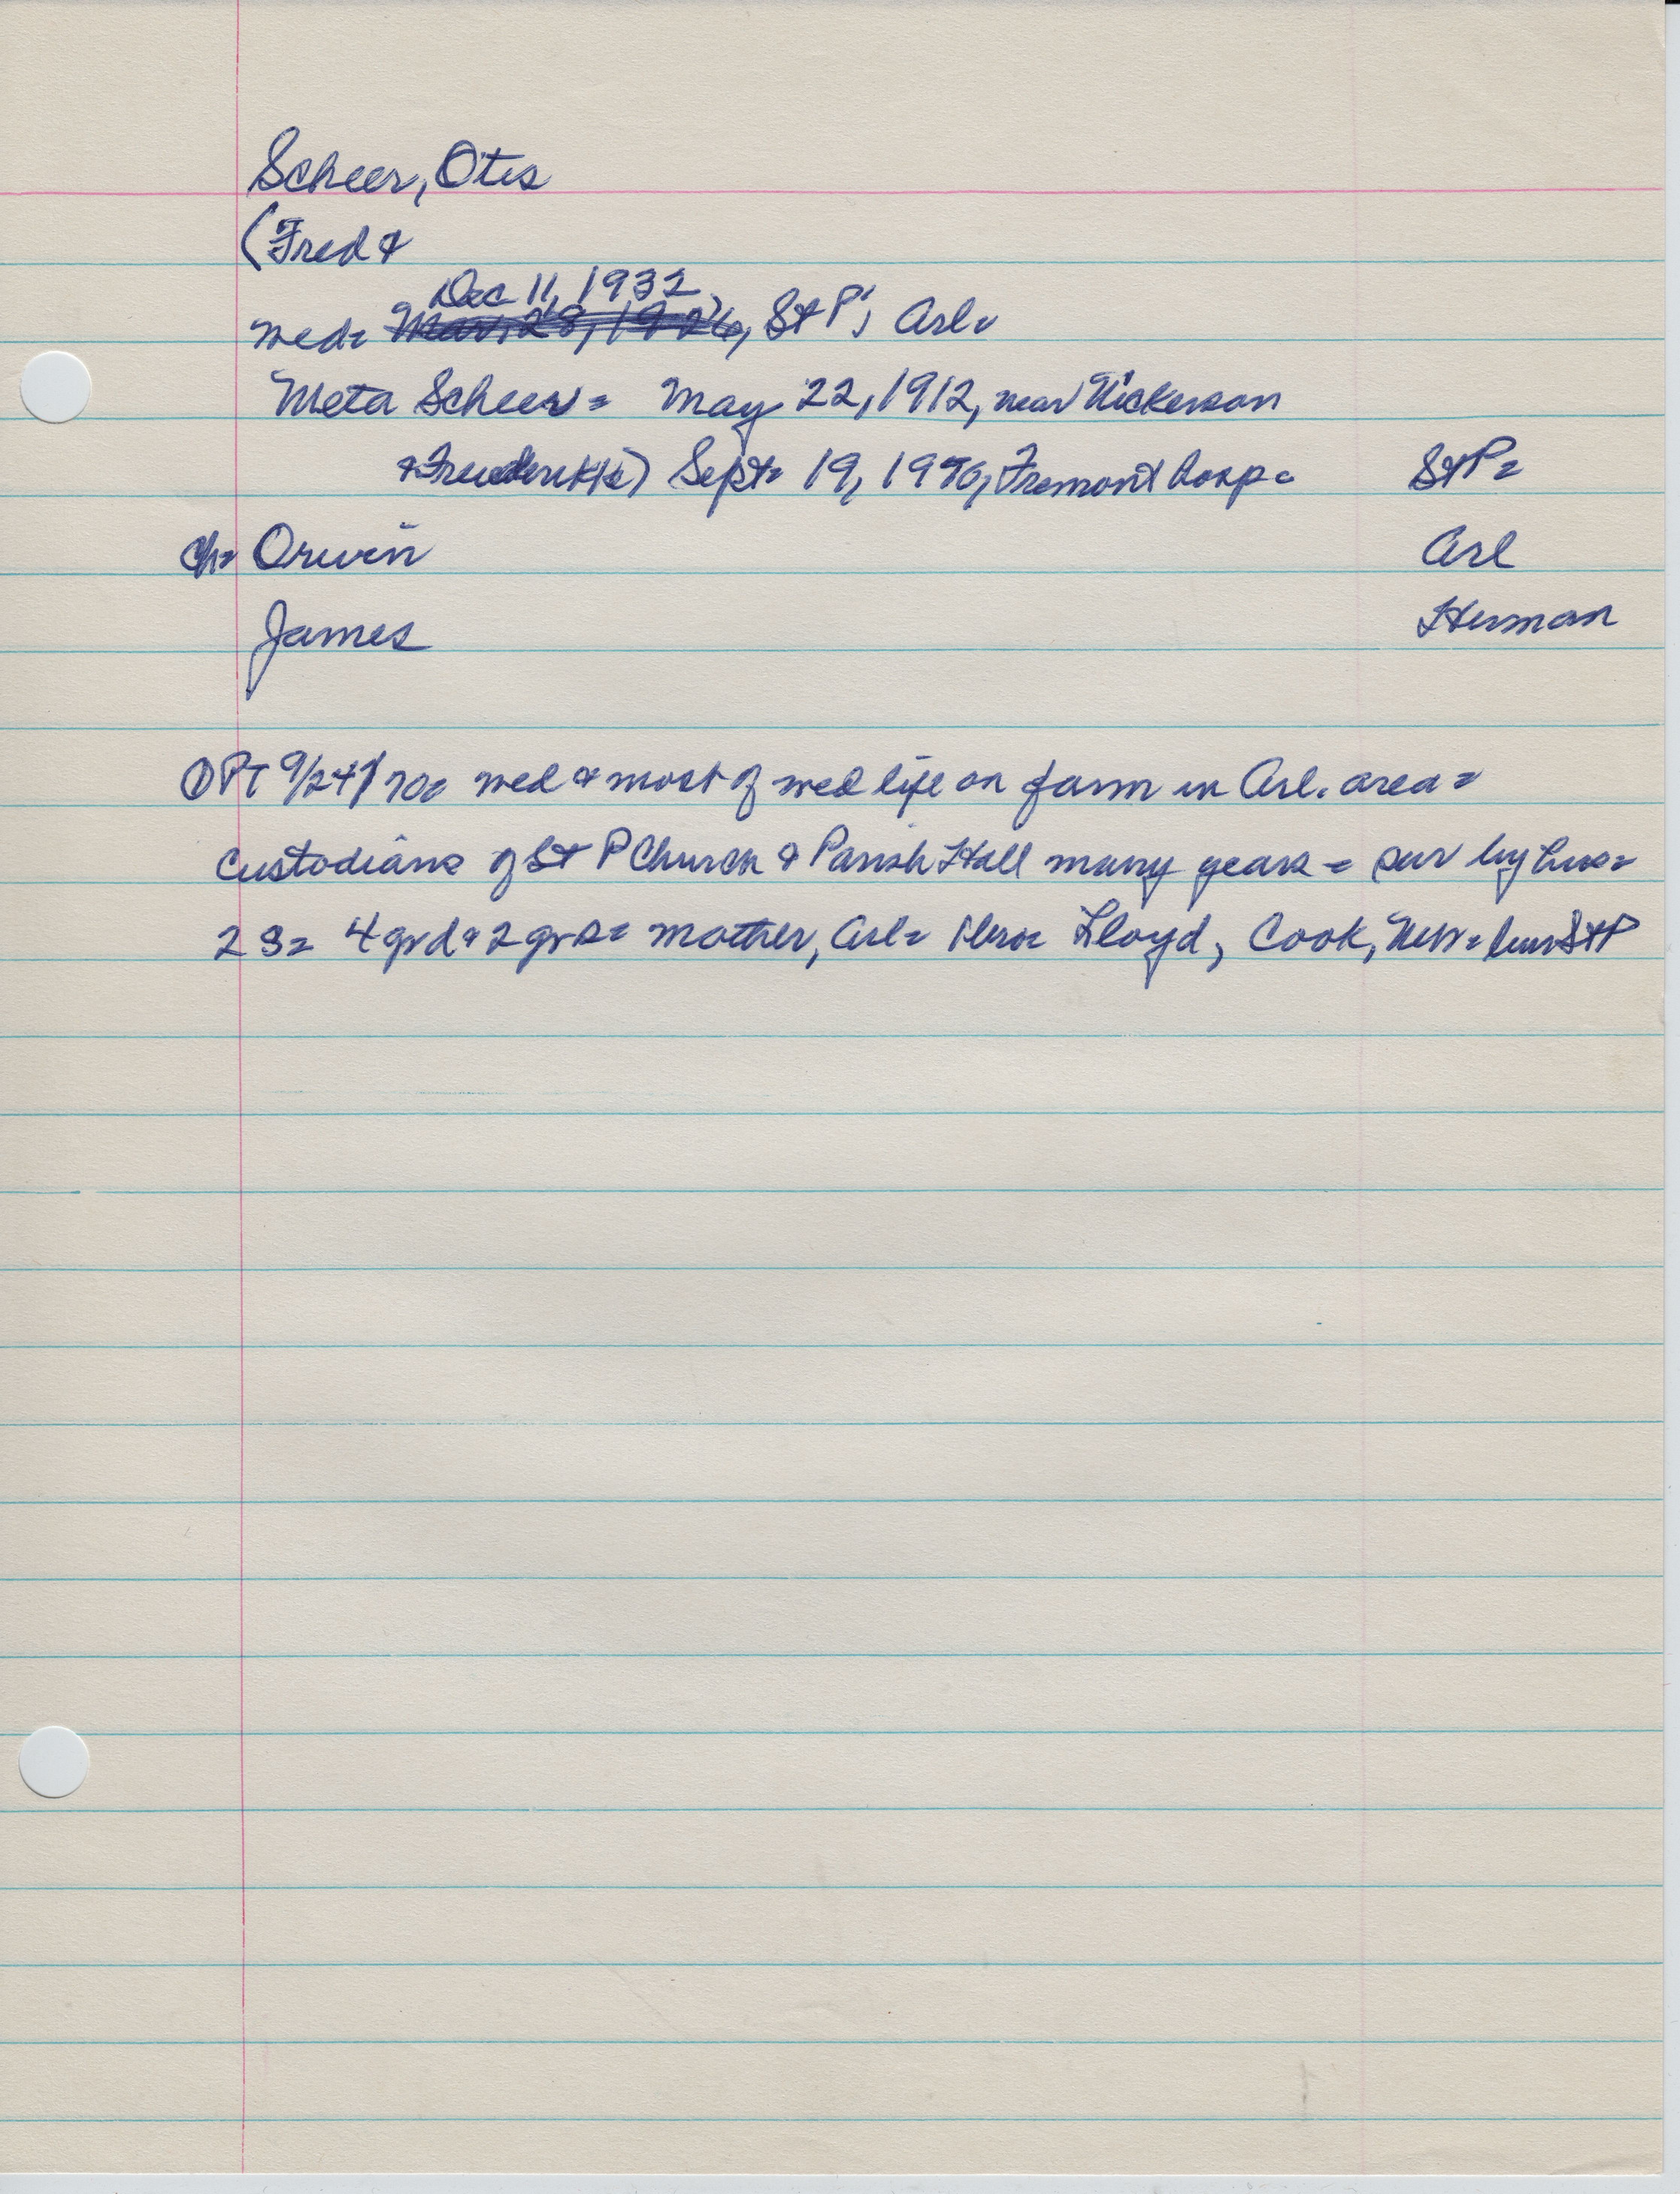 Scheer, Otis
(Fred &
Dec 11, 1932
med= Mar. 28, 1926, St P', Arl.
Meta Scheer= May 22, 1912, near Nickerson
& ) Sept= 19, 1970, Fremont hosp= St P=
ch= Orwin Arl
James Herman
OPT 9/24/70= med & most of med life on farm in Arl. area=
Custodians of St P Church & Parish Hall many years = sur by hus=
2 s= 4 grd & 2 grs= mother, Arl= Bro= Lloyd, Cook, Neb= bur St P